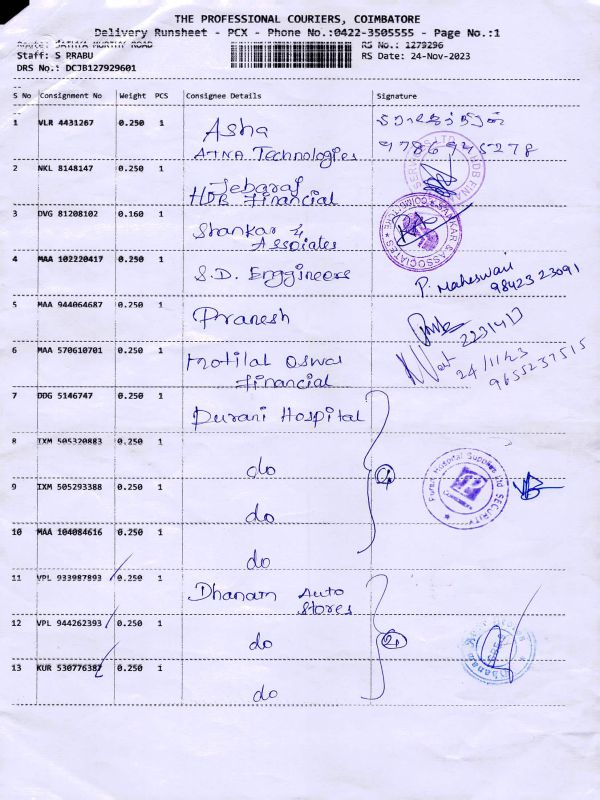 THE PROFESSIONAL COURIERS, COIMBATORE
Delivery Runsheet - PCX - Phone No.:0422-3505555 - Page No.:1
Route: SATHYA MURTHY ROAD RS No.: 1279296
Staff: S PRABU RS Date: 24-Nov-2023
DRS No.: DCJB127929601
S No Consignment No Weight PCS Consignee Details Signature
1 VLR 4431267 0.250 1 Asha
Technologies 9786945278
2 NKL 8148147 0.250 1 Jebaraj
HDB Financial
3 DVG 81208102 0.160 1 Shankar &
Assoiates
SANKAR & ASSOCIATES
COIMBATORE
4 MAA 102220417 0.250 1 S.D. Enggineers P. Maheswari
98423 23091
5 MAA 944064687 0.250 1 Pranesh
6 MAA 570610701 0.250 1 Motilal Oswal 24/11/23
Financial 9655237515
7 DDG 5146747 0.250 1 Purani Hospital
8 IXM 505320883 0.250 1 do
Purani Hospital Supplies Ltd SECURITY
9 IXM 505293388 0.250 1 do
10 MAA 104084616 0.250 1 do
11 VPL 933987893 0.250 1 Dhanam Auto
Stores
12 VPL 944262393 0.250 1 do
13 KUR 530776387 0.250 1 do